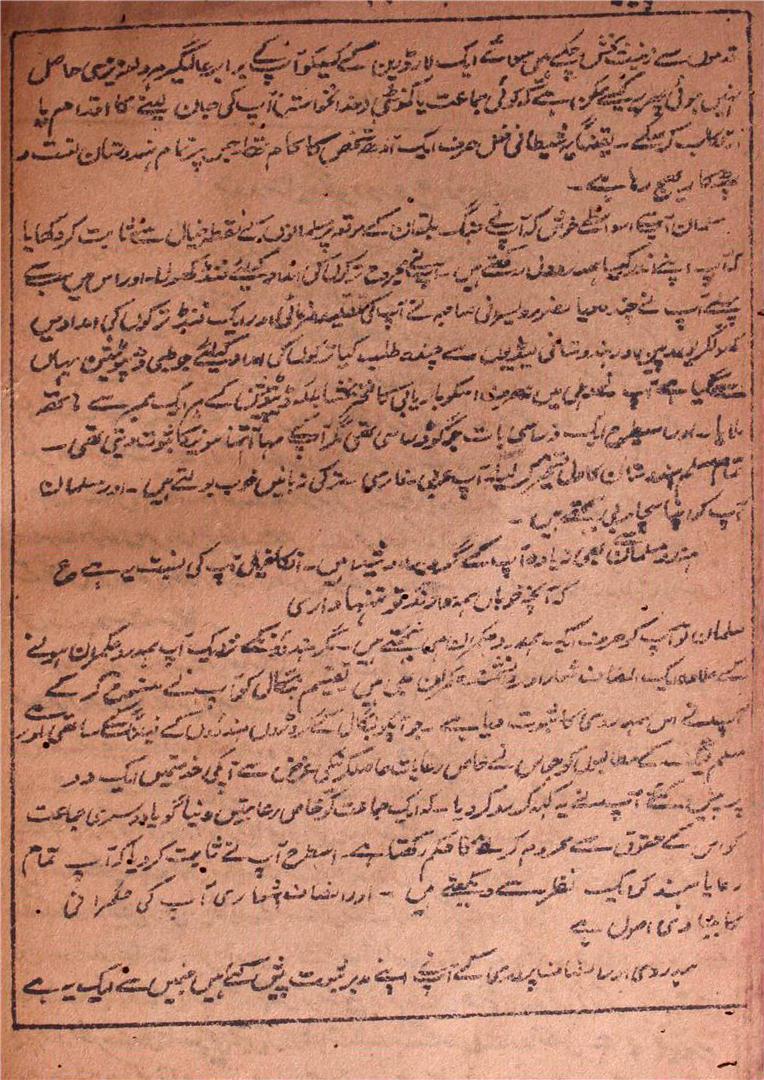 قدموں سے زینت بخش چکے ہیں سوائے ایک لارڈ رپن کے کسیکو آپ کے برابر عالمگیر ہردلعزیزی حاصل
نہیں ہوئی پھر یہ کیسے ممکن ہے کہ کوئی جماعت یا کمونٹی (خدانخواستہ) آپ کی جان لینے کا اقدام یا
ارتکاب کر سکے ۔ یقیناً یہ شیطانی فعل صرف ایک آدھ شخص کا کام تھا جس پر تمام ہندوستان لعنت و
پھٹکار بھیج رہا ہے ۔
مسلمان آپسے اسواسطے خوش کہ آپنے جنگ بلقان کے موقعہ پر مسلمانوں کے نقطہ خیال سے ثابت کر دکھایا
کہ آپ اپنے اندر کیسا ہمدرد دل رکھتے ہیں ۔ آپنے مجروح ترکوں کی امداد کیلئے فنڈ کھولا ۔ اور اس میں سب سے
پہلے آپ نے چندہ دیا حضور لیڈی صاحبہ نے آپ کی تقلید فرمائی اور ایک فنڈ ترکوں کی امداد میں
کھولکر یورپین اور ہندوستانی لیڈیوں سے چندہ طلب کیا ترکوں کی امداد کیلئے جو طبی ڈیپوٹیشن یہاں
سے گیا ہے آپ نے دہلی میں نہ صرف اسکو باریابی کا فخر بخشا بلکہ ڈیپوٹیشن کے ہر ایک ممبر سے ہاتھ
ملایا ۔ اور اسیطرح ایک ذرا سی بات جو گو ذرا سی تھی مگر آپکے مہاتما ہونیکا ثبوت دیتی تھی ۔
تمام مسلم ہندوستان کا دل تسخیر کر لیا ۔ آپ عربی ۔ فارسی ۔ ترکی زبانیں خوب بولتے ہیں ۔ اور مسلمان
آپ کو اپنا سچا مربی سمجھتے ہیں ۔
ہندو مسلمانوں سے بھی زیادہ آپ کے گرویدہ و شیدا ہیں ۔ انکا خیال آپ کی نسبت یہ ہے ع
کہ آنچہ خوباں ہمہ دارند تو تنہا داری
مسلمان تو آپ کو صرف ایک ہمدرد حکمران ہی سمجھتے ہیں ۔ مگر ہندوؤنکے نزدیک آپ ہمدرد حکمران ہونے
کے علاوہ ایک انصاف شعار اور دانشمند حکمران بھی ہیں تقسیم بنگال کو آپ نے منسوخ کر کے
آپنے اس ہمدردی کا ثبوت دیا ہے ۔ جو آپکو بنگال کے کروڑوں ہندوؤں کے ساتھ ہے اور
مسلم لیگ کے مطالبوں کو جو اس نے خاص رعایات حاصل کرنیکی غرض سے آپکی خدمتمیں ایک دو
پر پیش کئے آپ نے یہ کہکر رد کر دیا ۔ کہ ایک جماعت کو خاص رعایتیں دینا گویا دوسری جماعت
کو اس کے حقوق سے محروم کرنے کا حکم رکھتا ہے ۔ اسطرح آپ نے ثابت کر دیا کہ آپ تمام
رعایا ہند کو ایک نظر سے دیکھتے ہیں ۔ اور انصاف شعاری آپ کی حکمرانی
کا بنیادی اصول ہے
ہمدردی اور انصاف پروری کے آپنے اپنے ثبوت پیش کئے ہیں جنمیں سے ایک یہ ہے